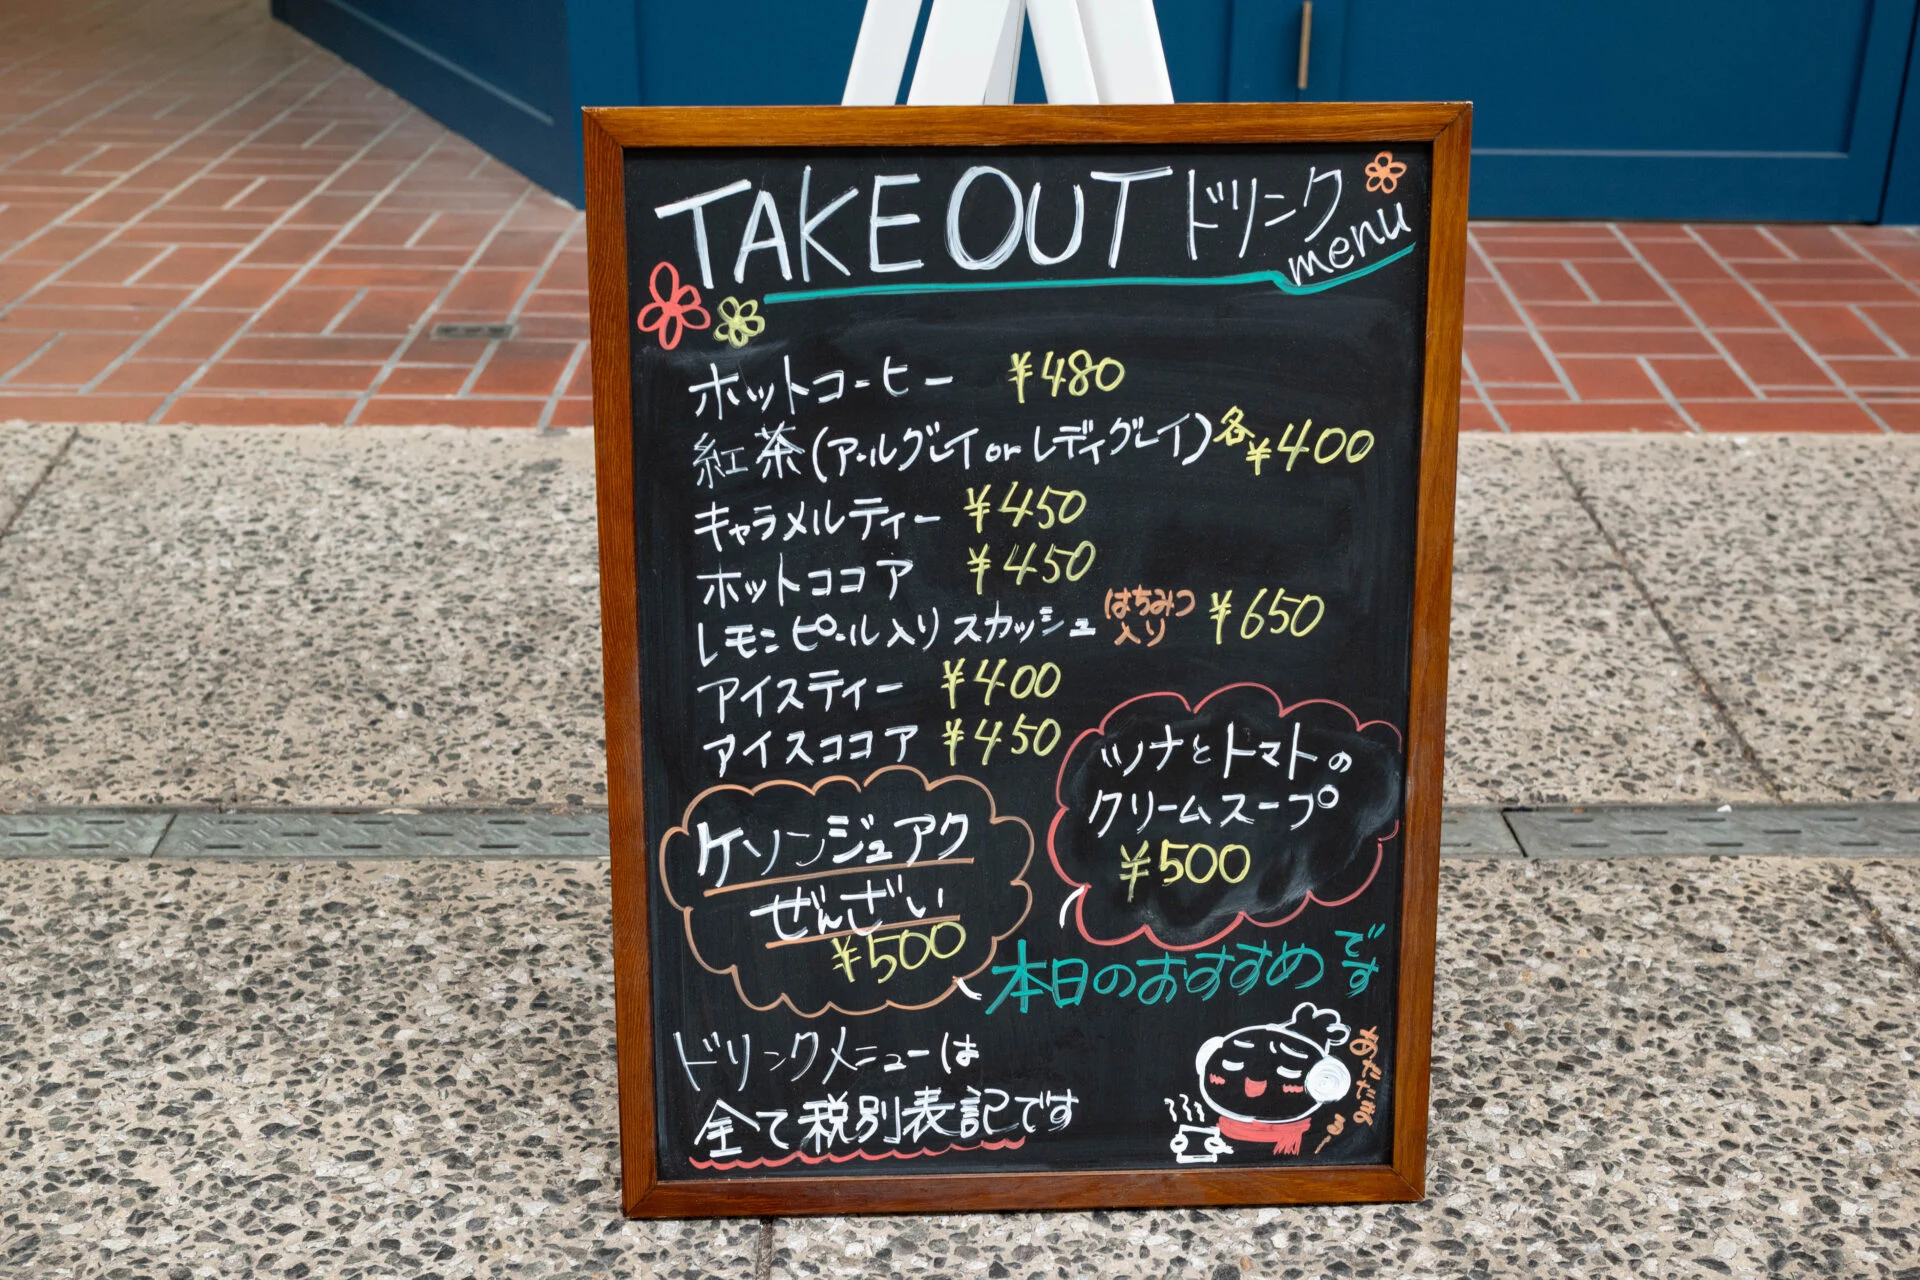 TAKE OUT ドリンク
menu
ホットコーヒー ¥480
紅茶(アールグレイ or レディグレイ)各¥400
キャラメルティー ¥450
ホットココア ¥450
レモンピール入りスカッシュ はちみつ入り ¥650
アイスティー ¥400
アイスココア ¥450
ツナとトマトの
クリームスープ
¥500
ケソンジュアク
ぜんざい
¥500
本日のおすすめです
ドリンクメニューは
全て税別表記です